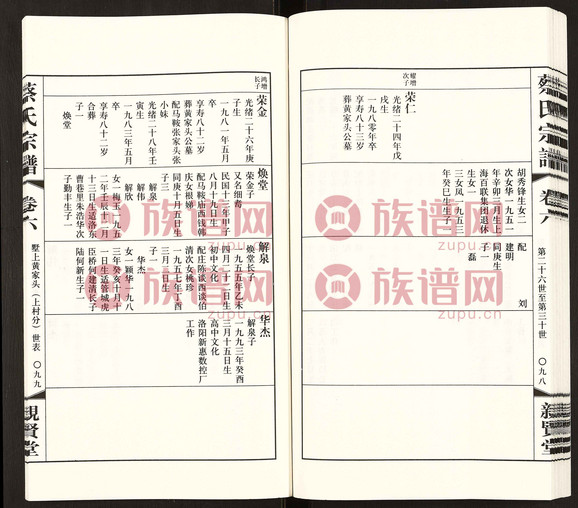 蔡氏宗譜
卷六
第二十六世至第三十世
〇九八
新賢堂
耀增
次子
荣仁
光绪二十四年戊
戌生
一九八〇年卒
享寿八十三岁
葬黄家头公墓
胡秀锋生女二
次女华一九五一
年辛卯三月生上
海百联集团退休
三女凤一九五三
年癸巳生生子
配
同庚生
建明
子一
女一
磊
刘
鸿增
长子
荣金
光绪二十六年庚
子生
一九八一年五月
卒
享寿八十二岁
葬黄家头公墓
配马鞍张家头张
小妹
光绪二十八年壬
一九八三年五月
卒
享寿八十二岁
合葬
子一
焕堂
焕堂
荣金子
又名细斋
民国十三年甲子
八月十九日生
配马鞍庙西钱韩
庆女根娣
同庚十月五日生
子三
解泉
解伟
解欣
女一梅玉一九五
二年壬辰十二月
十三日生适洛东
曹巷里朱浩华次
子勤丰生子一
解泉
焕堂长子
一九五五年乙未
四月二十二日生
初中文化
配庄陈谈西谈伯
清次女桃珍
一九五七年丁酉
三月一日生
子一
华杰
女一颖华一九八
三年癸亥十月十
一日生适管城虎
臣桥何建清长子
陆何新生子一
华杰
解泉子
一九九三年癸酉
三月十五日生
高中文化
洛阳新惠数控厂
工作
蔡氏宗譜
卷六
墅上黄家头（上村分）世表
〇九九
観賢堂
族谱网
zupu.cn
族谱网
zupu.cn
族谱网
zupu.cn
族谱网
zupu.cn